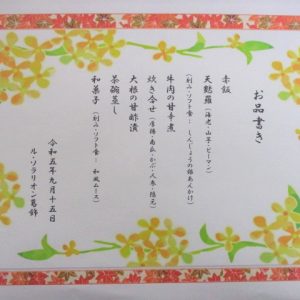 お品書き
赤飯
天麩羅（海老・山芋・ピーマン）
（刻み・ソフト食：しんじょうの銀あんかけ）
牛肉の甘辛煮
炊き合せ（南瓜・かぶ・人参・隠元）
大根の甘酢漬
茶碗蒸し
和菓子（刻み・ソフト食：和風ムース）
令和五年九月十五日
ル・ソラリオン葛飾